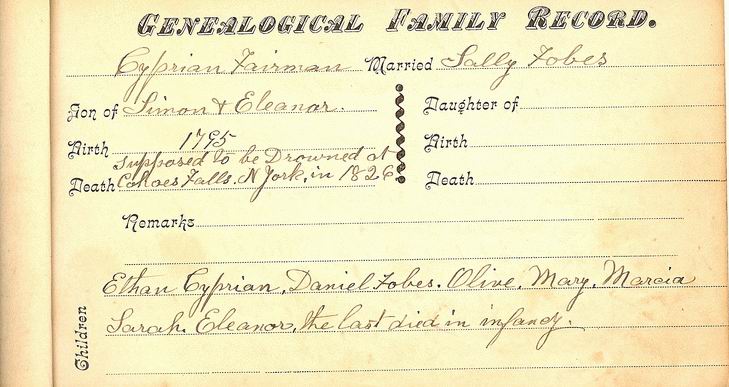 GENEALOGICAL FAMILY RECORD.
Cyprian Fairman Married Sally Fobes
Son of Simon & Eleanor. Daughter of
Birth 1795 Birth
supposed to be Drowned at
Death Cohoes Falls. N York, in 1826 Death
Remarks
Ethan Cyprian, Daniel Fobes. Olive, Mary. Marcia
Children Sarah. Eleanor, the last died in infancy.